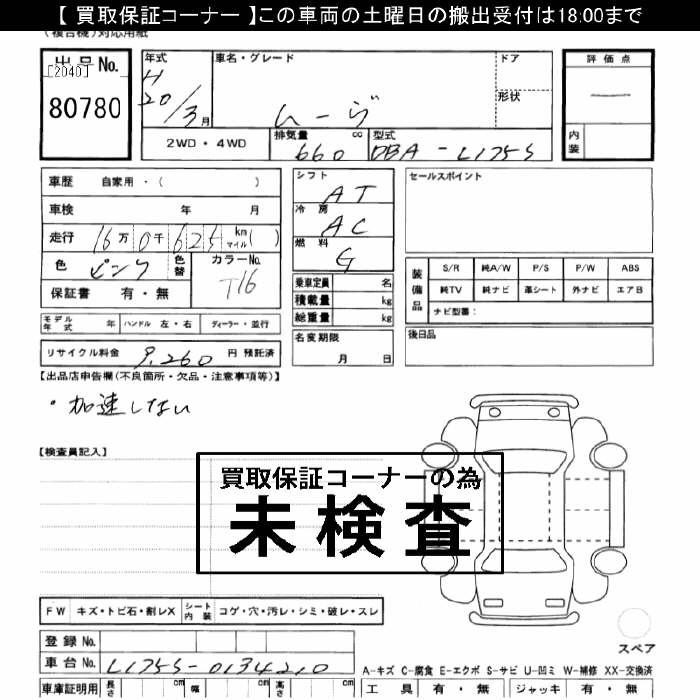 【 買取保証コーナー 】この車両の土曜日の搬出受付は18:00まで
(複合機)対応用紙
出品No.
[2040]
80780
年式
H
20/3月
車名・グレード
ムーヴ
ドア
形状
評価点
内装
2WD・4WD
排気量
660 cc
型式
DBA-L175S
車歴 自家用・( )
車検 年 月
走行 16万0千625 km マイル( )
色 ピンク 色替
カラーNo.
T16
保証書 有・無
シフト
AT
冷房
AC
燃料
G
乗車定員 名
積載量 kg
総重量 kg
セールスポイント
装備品
S/R 純A/W P/S P/W ABS
純TV 純ナビ 革シート 外ナビ エアB
ナビ型番:
モデル年式 年 ハンドル 左・右 ディーラー・並行
リサイクル料金 9,260 円 預託済
名変期限
月 日
後日品
【出品店申告欄(不良箇所・欠品・注意事項等)】
・加速しない
【検査員記入】
買取保証コーナーの為
未検査
FW キズ・トビ石・割レX シート内装 コゲ・穴・汚レ・シミ・破レ・スレ
登録No.
車台No. L175S-0134210
スペア
A-キズ C-腐食 E-エクボ S-サビ U-凹ミ W-補修 XX-交換済
車庫証明用 長さ cm 幅 cm 高さ cm
工具 有・無 ジャッキ 有・無